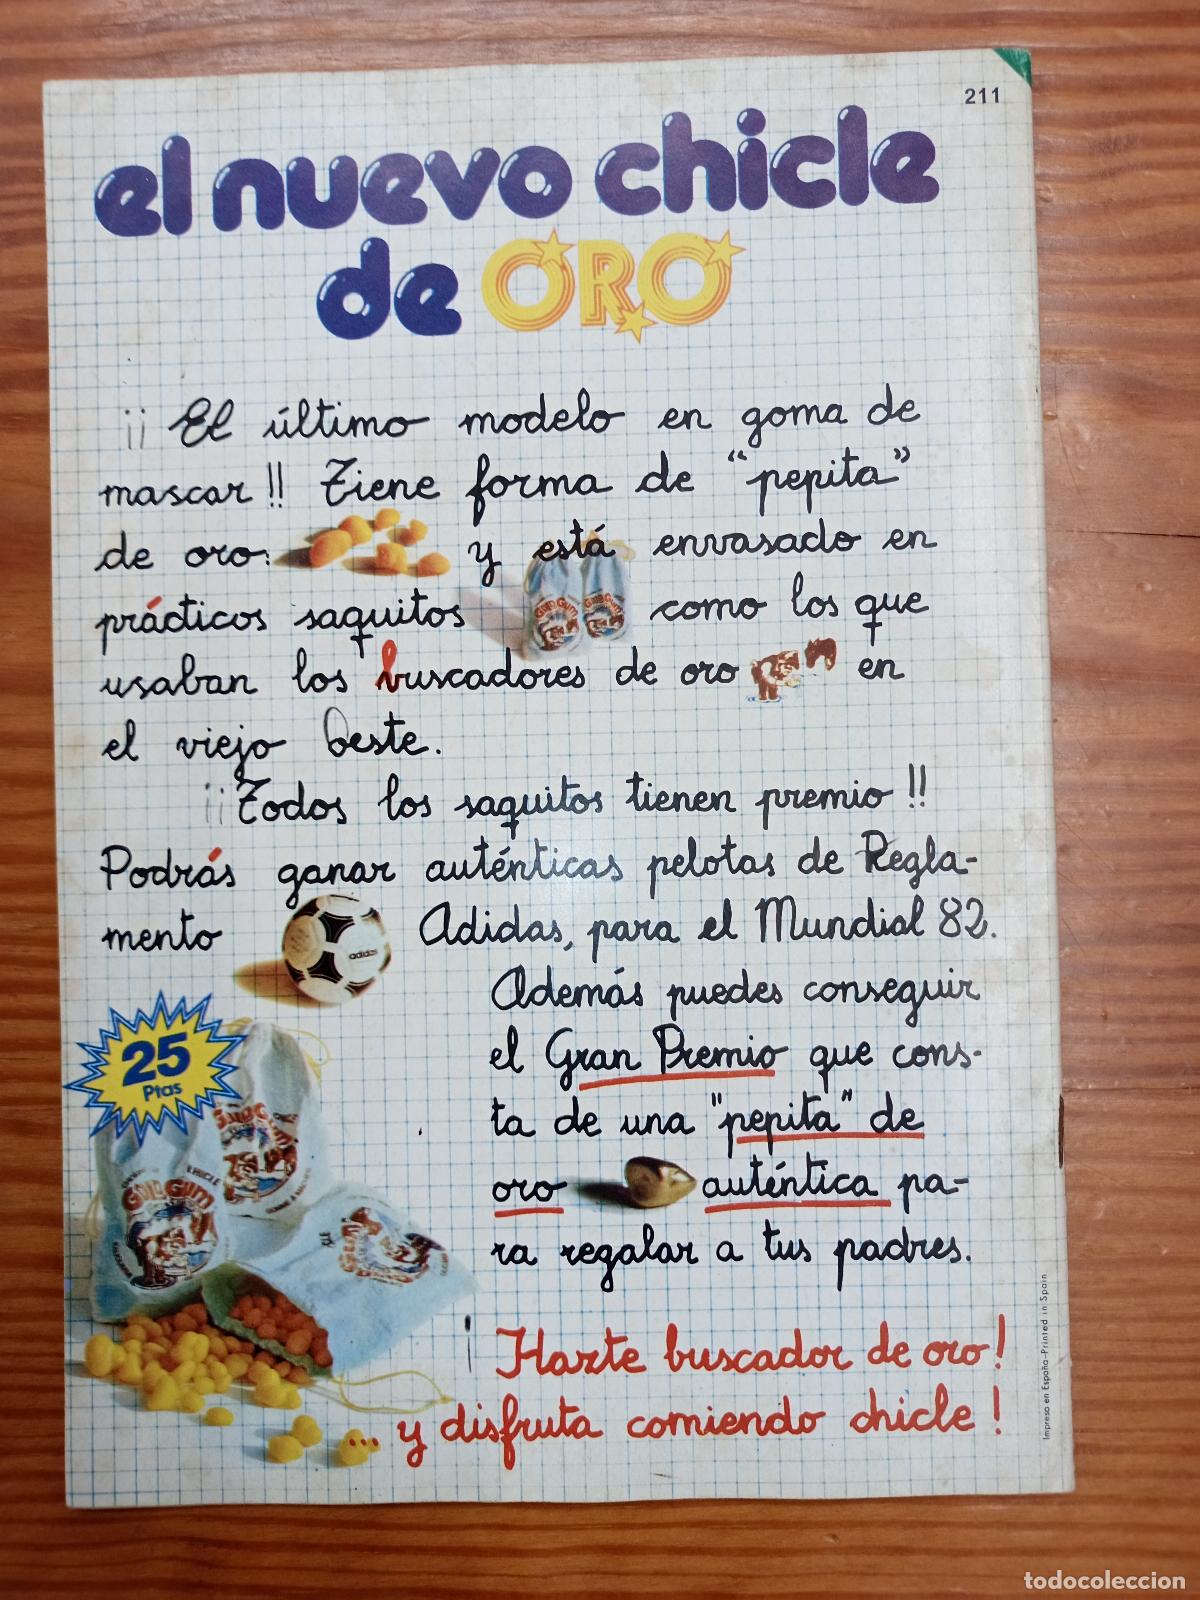 211
el nuevo chicle
de ORO
¡¡ El último modelo en goma de
mascar!! Tiene forma de "pepita"
de oro: y está envasado en
prácticos saquitos como los que
usaban los buscadores de oro en
el viejo Oeste.
¡¡Todos los saquitos tienen premio!!
Podrás ganar auténticas pelotas de Regla-
mento Adidas, para el Mundial 82.
adidas
Además puedes conseguir
el Gran Premio que cons-
ta de una "pepita" de
oro auténtica pa-
ra regalar a tus padres.
25
Ptas
GOLD GUM
CHICLE
GOLD GUM
¡Hazte buscador de oro!
... y disfruta comiendo chicle!
Impreso en España-Printed in Spain
todocoleccion